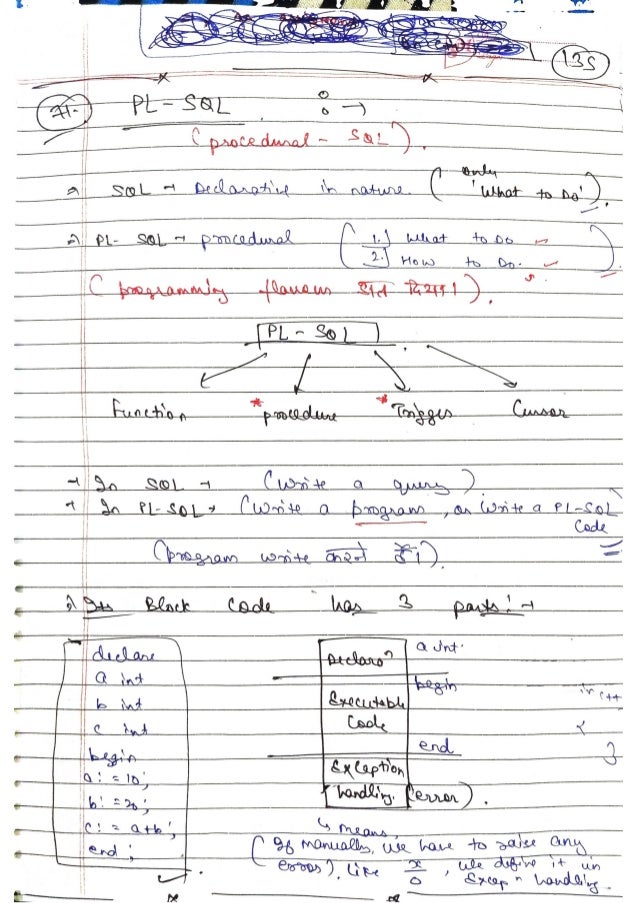 135
71. PL-SQL :→
(procedural - SQL).
⇒ SQL → Declarative in nature. (only 'What to Do').
⇒ PL-SQL → procedural (1.) What to Do
2.) How to Do.)
(programming flavour डाल दिया।).
PL-SQL
Function *procedure *Trigger Cursor
→ In SQL → (write a query)
→ In PL-SQL → (write a program, or write a PL-SQL
Code
(program write करते हैं।).
⇒ Its Block Code has 3 parts:→
declare
a int
b int
c int
begin
a:=10;
b:=20;
c:= a+b;
end;
Declaraⁿ a int.
begin
Executable
Code
end
Exception
handling. (error).
in C++
{
}
↳ means,
(If manually, we have to raise any
error). like x/0, we define it in
Excepⁿ handling.